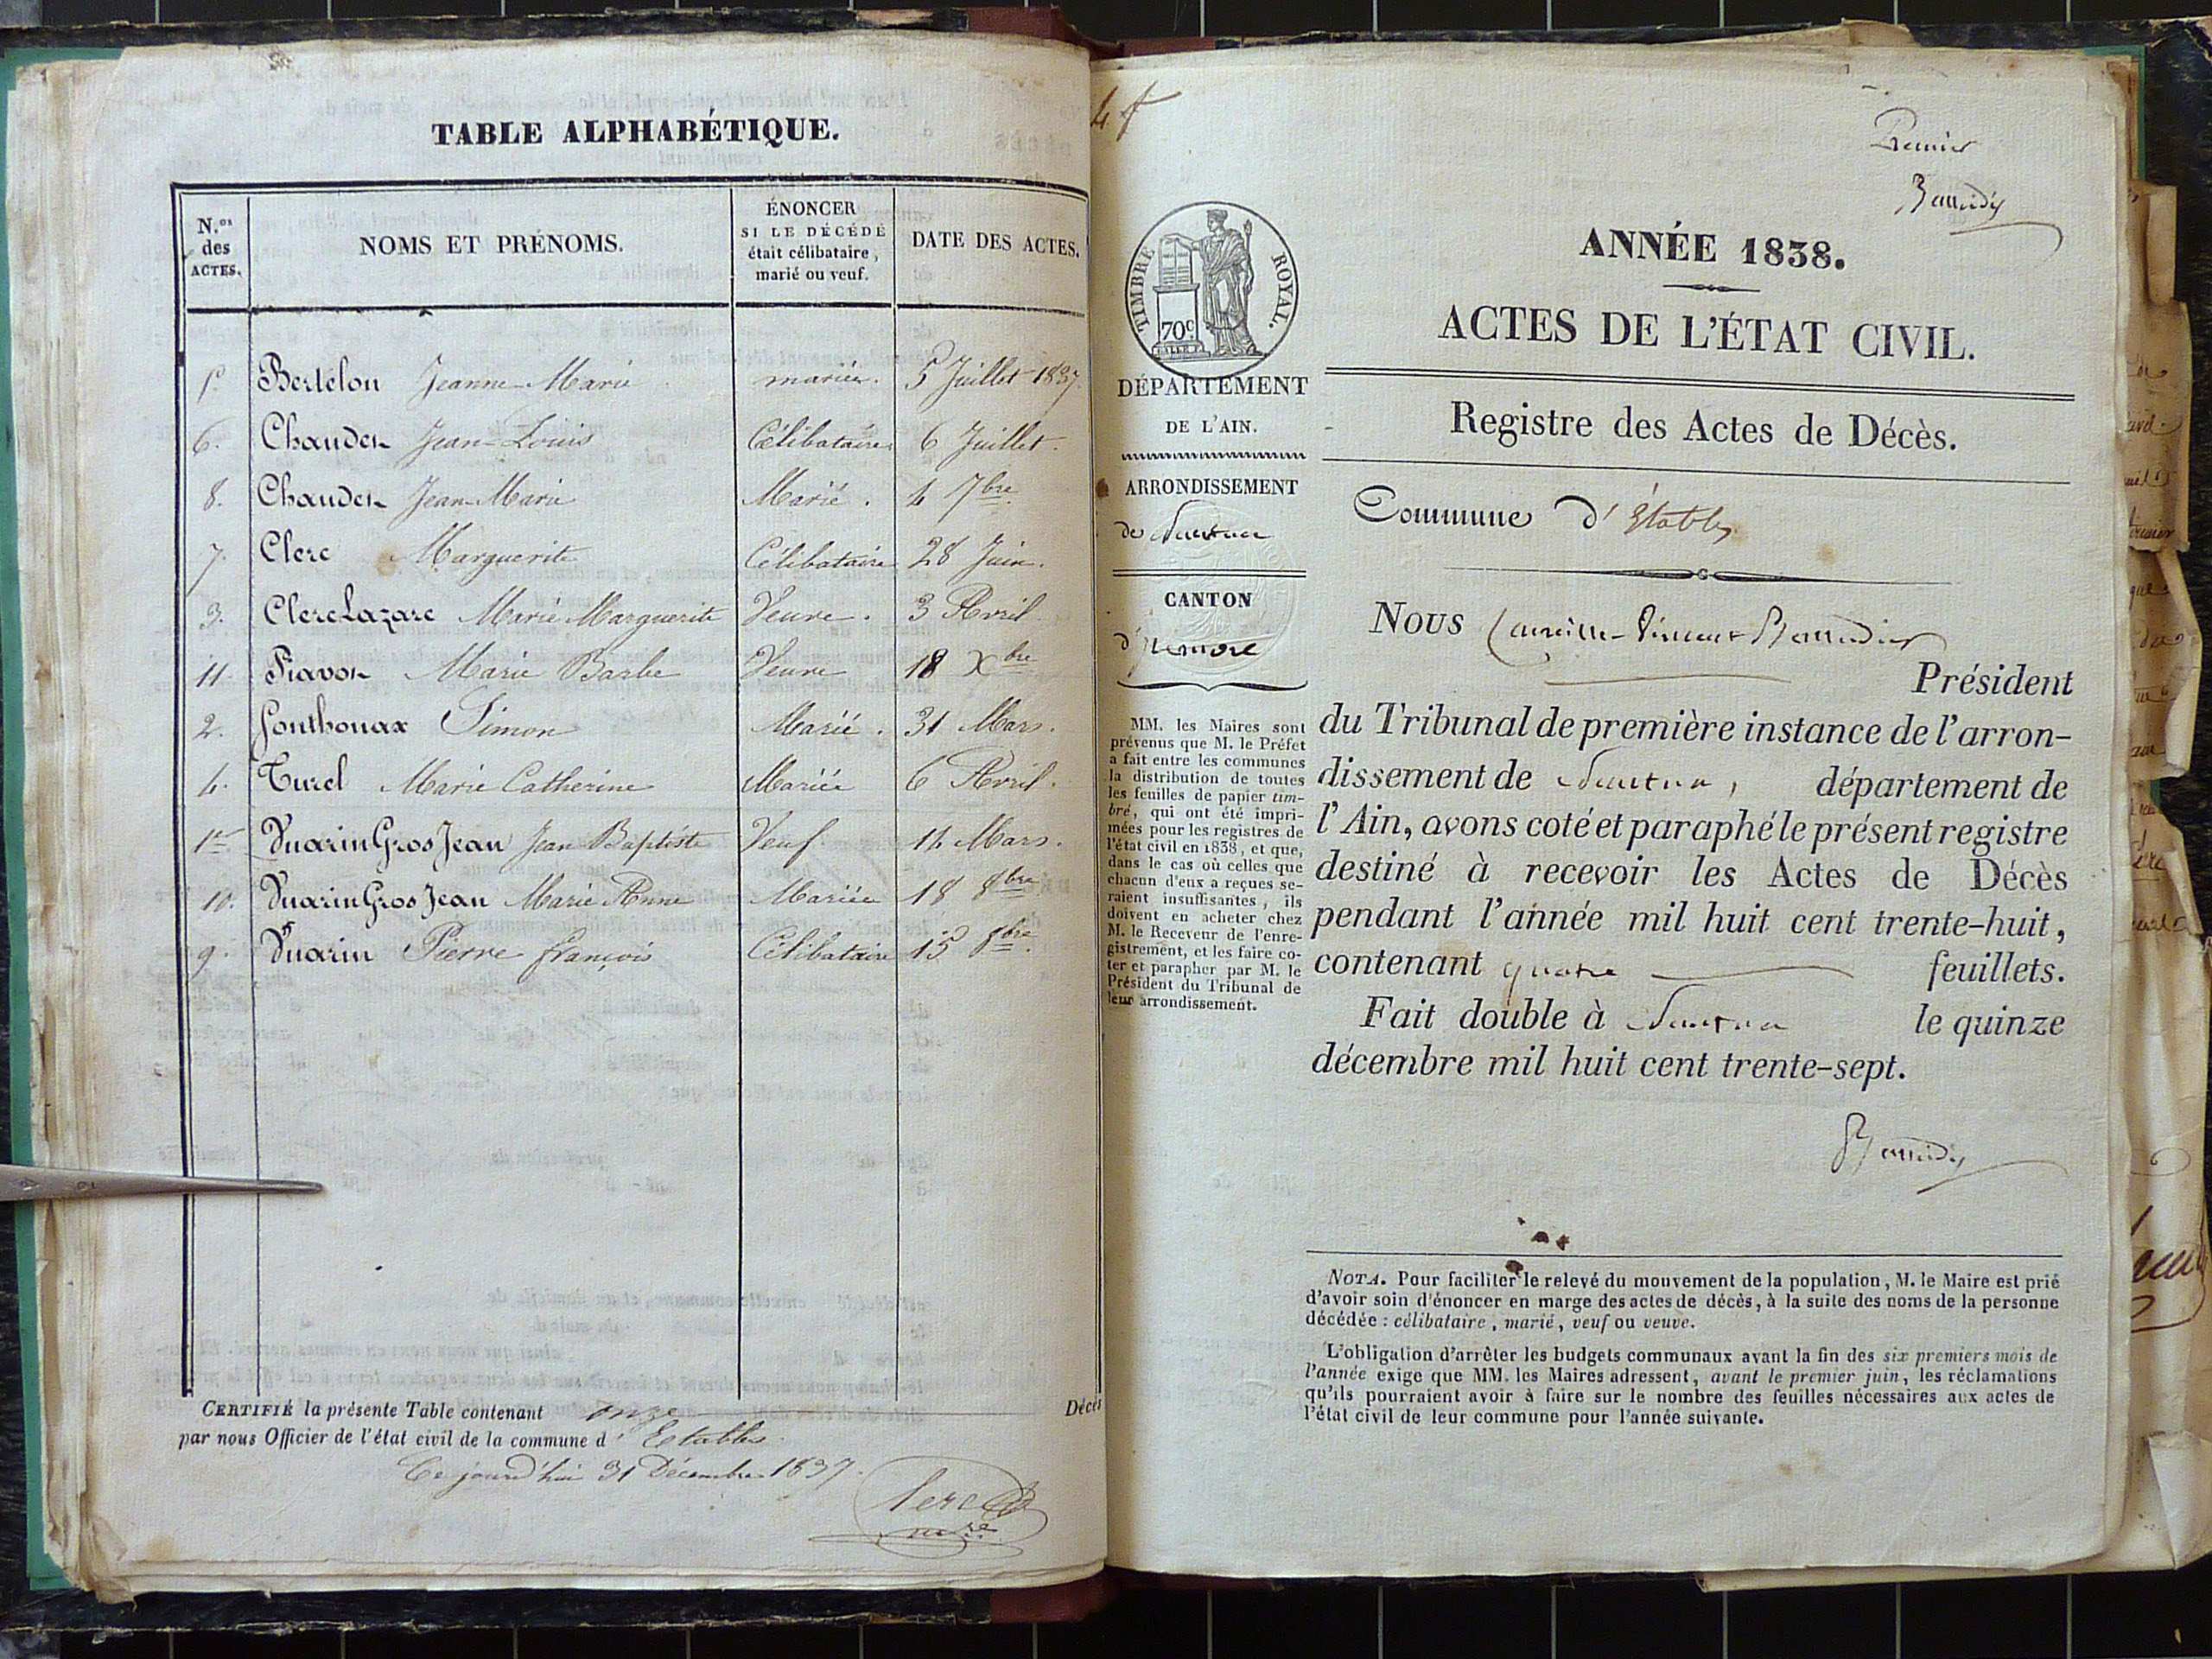 TABLE ALPHABÉTIQUE.
N.os des ACTES.
NOMS ET PRÉNOMS.
ÉNONCER SI LE DÉCÉDÉ était célibataire, marié ou veuf.
DATE DES ACTES.
5. Bertelon Jeanne-Marie mariée. 5 Juillet 1837.
6. Chauden Jean-Louis Célibataire 6 Juillet.
8. Chauden Jean-Marie Marié. 4 7bre
7. Clerc Marguerite Célibataire 28 Juin.
3. Clerc Lazare Marie Marguerite Veuve. 3 Avril
11. Marie Barbe Veuve 18 Xbre
2. Gonthonax Simon Marié. 31 Mars.
4. Turel Marie Catherine Mariée 6 Avril.
1er Vuarin Gros Jean Jean Baptiste Veuf. 14 Mars.
10. Vuarin Gros Jean Marie Anne Mariée 18 8bre
9. Vuarin Pierre François Célibataire 15 8bre.
CERTIFIÉ la présente Table contenant onze Décès
par nous Officier de l'état civil de la commune d'Etables
Ce jourd'hui 31 Décembre 1837.
Clerc
4 f
Premier
TIMBRE ROYAL.
70c
DÉPARTEMENT
DE L'AIN.
ARRONDISSEMENT
de Nantua
CANTON
d'
MM. les Maires sont
prévenus que M. le Préfet
a fait entre les communes
la distribution de toutes
les feuilles de papier tim-
bré, qui ont été impri-
mées pour les registres de
l'état civil en 1838, et que,
dans le cas où celles que
chacun d'eux a reçues se-
raient insuffisantes, ils
doivent en acheter chez
M. le Receveur de l'enre-
gistrement, et les faire co-
ter et parapher par M. le
Président du Tribunal de
leur arrondissement.
ANNÉE 1838.
ACTES DE L'ÉTAT CIVIL.
Registre des Actes de Décès.
Commune d'Étables
Nous
Président
du Tribunal de première instance de l'arron-
dissement de Nantua, département de
l'Ain, avons coté et paraphé le présent registre
destiné à recevoir les Actes de Décès
pendant l'année mil huit cent trente-huit,
contenant quatre feuillets.
Fait double à Nantua le quinze
décembre mil huit cent trente-sept.
NOTA. Pour faciliter le relevé du mouvement de la population, M. le Maire est prié
d'avoir soin d'énoncer en marge des actes de décès, à la suite des noms de la personne
décédée : célibataire, marié, veuf ou veuve.
L'obligation d'arrêter les budgets communaux avant la fin des six premiers mois de
l'année exige que MM. les Maires adressent, avant le premier juin, les réclamations
qu'ils pourraient avoir à faire sur le nombre des feuilles nécessaires aux actes de
l'état civil de leur commune pour l'année suivante.